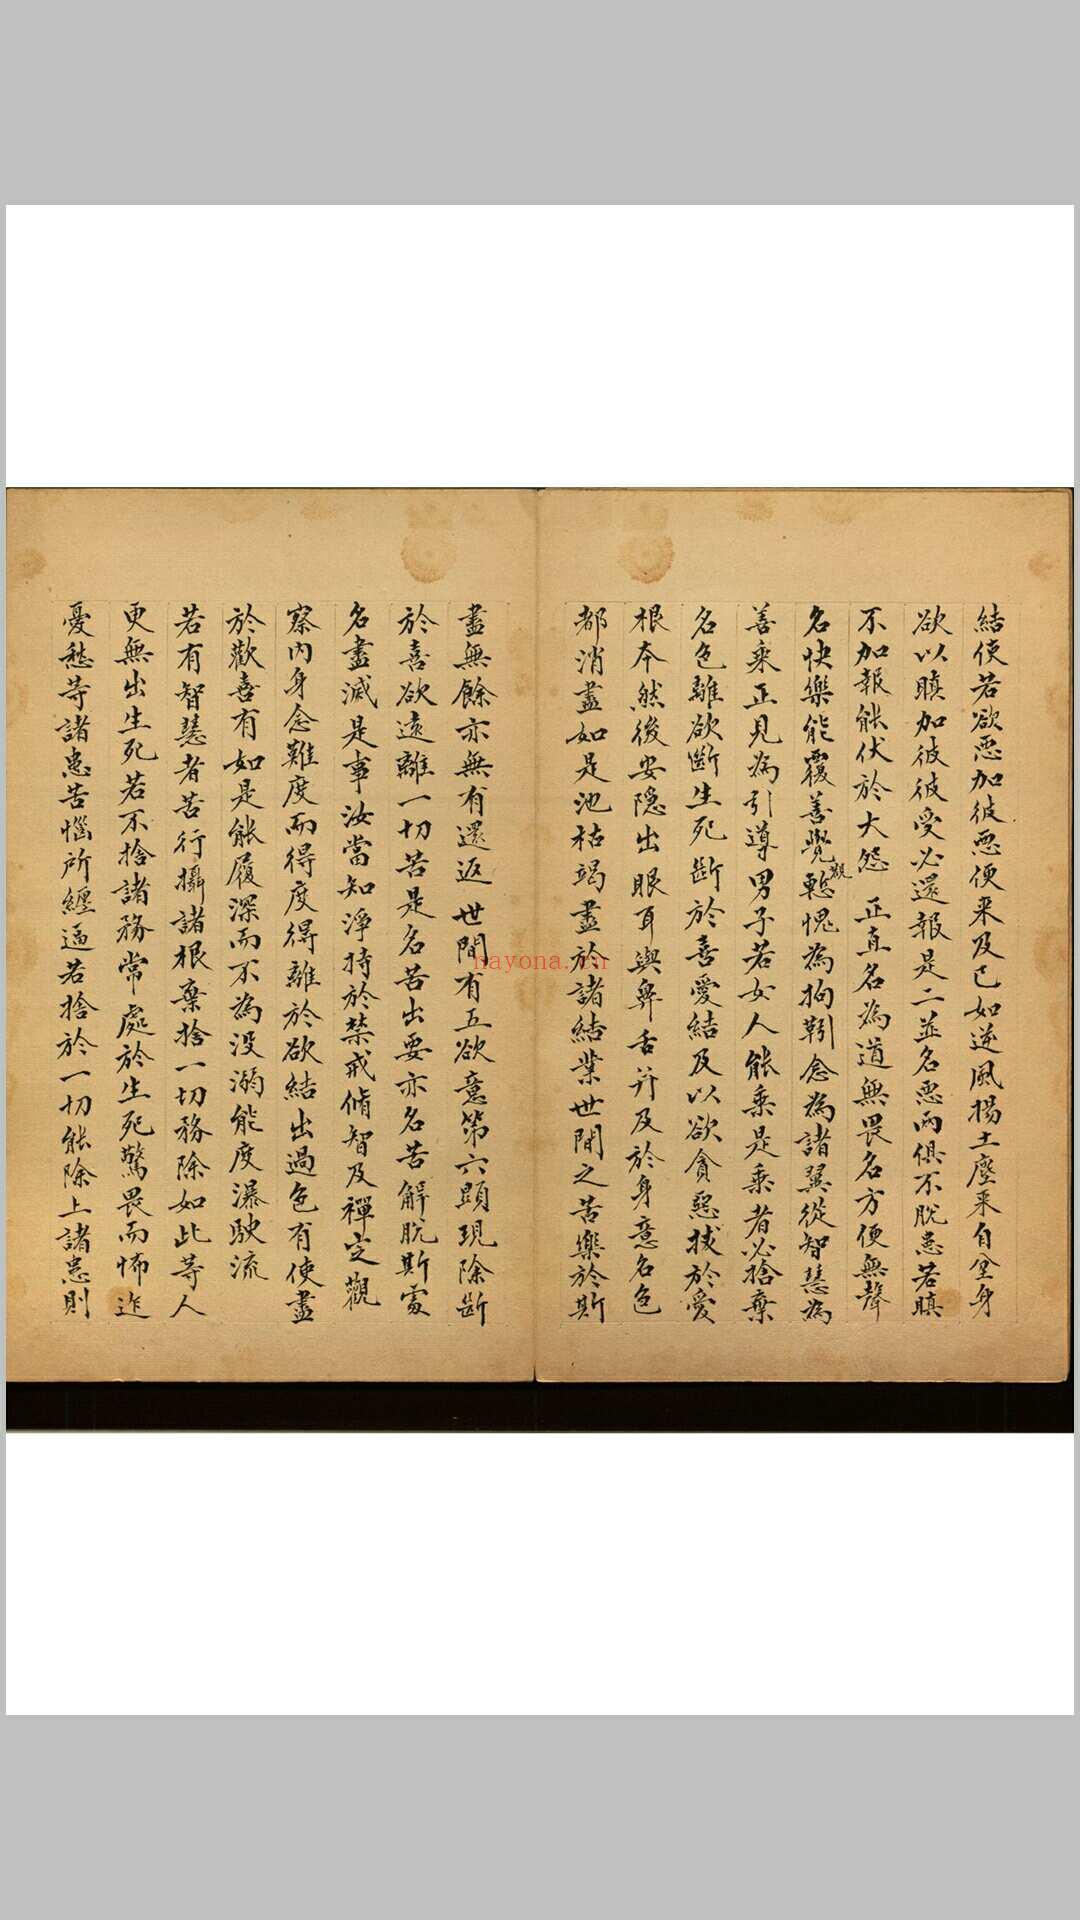 結使若欲惡加彼惡便来及己如逆風揚土塵来自坌身
欲以瞋加彼彼受必還報是二並名惡兩俱不脫患若瞋
不加報能伏於大怨 正直名為道無畏名方便無聲
名快樂能覆善覺觀慙愧為拘靷念為諸翼從智慧為
善乘正見為引導男子若女人能乘是乘者必捨棄
名色離欲斷生死斷於喜愛結及以欲貪惡拔於愛
根本然後安隱出眼耳與鼻舌并及於身意名色
都消盡如是池枯竭盡於諸結業世間之苦樂於斯
盡無餘亦無有還返世間有五欲意第六顕現除斷
於喜欲遠離一切苦是名苦出要亦名苦解脫斯處
名盡滅是事汝當知淨持於禁戒脩智及禪定觀
察内身念難度而得度得離於欲結出過色有使盡
於歡喜有如是能履深而不為没溺能度瀑駛流
若有智慧者苦行攝諸根棄捨一切務除如此等人
更無出生死若不捨諸務常處於生死驚畏而怖迮
憂愁等諸患苦惱所纏逼若捨於一切能除上諸患則
nayona.cn